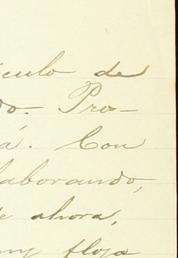 ículo de
do. Pro-
á. Con
laborando,
e ahora,
uy floja